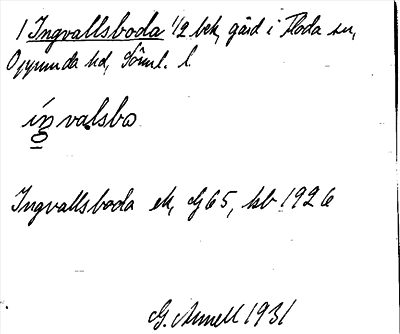 1 Ingvallsboda 1/2 bek, gård i Floda sn,
Oppunda hd, Söml. l.
íngvalsbo
Ingvallsboda ek, G65, kb 1926
G. Annell 1931